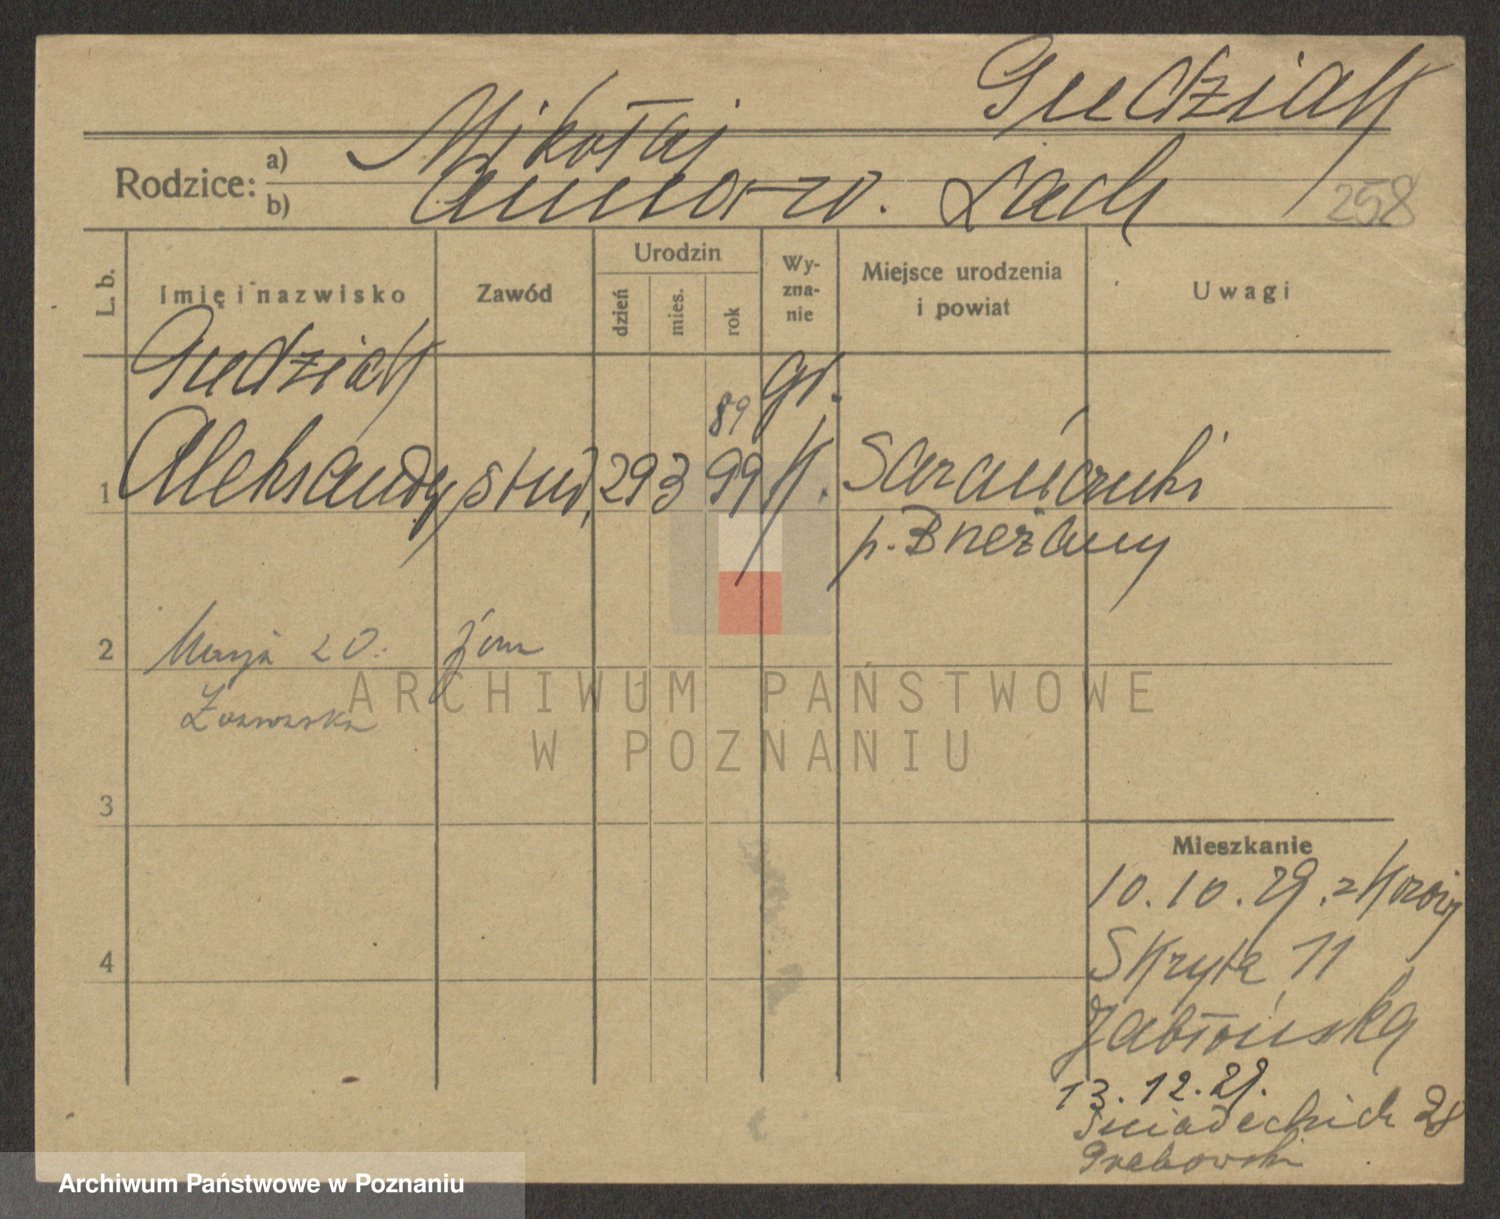 Gudziak
Rodzice:
a) Mikołaj
b) Anna z d. Lach
258
L. b.
Imię i nazwisko
Zawód
Urodzin
dzień
mies.
rok
Wy-
zna-
nie
Miejsce urodzenia
i powiat
Uwagi
Gudziak
gr.
89
1 Aleksandry stud. 29 3 99 K. Sarańczuki
p. Brzeżany
2 Marja z D. żona
3
Mieszkanie
10.10.29. z
4
Skryta 11
Jabłońska
13.12.29.
Śniadeckich 28
Grabowski
ARCHIWUM PAŃSTWOWE
W POZNANIU
Archiwum Państwowe w Poznaniu